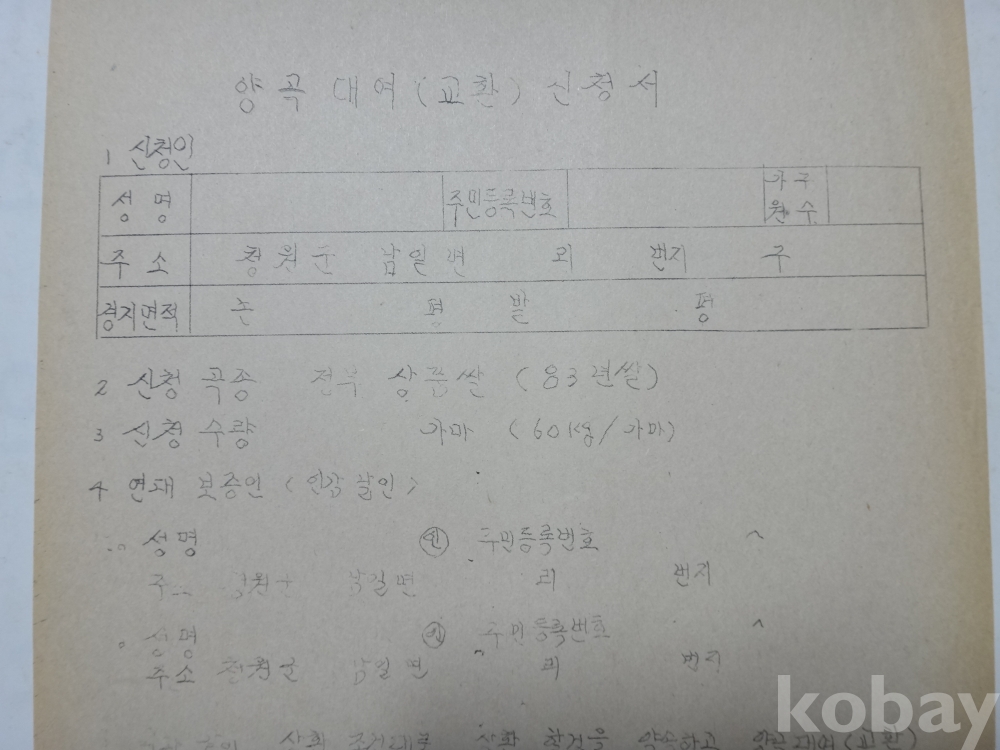 양곡 대여(교환) 신청서
1 신청인
성명 주민등록번호 가구원수
주소 청원군 남일면 리 번지 구
경지면적 논 평 밭 평
2 신청 곡종 정부 상품쌀 (83년쌀)
3 신청 수량 가마 (60Kg/가마)
4 연대 보증인 (인감 날인)
성명 ㊞ 주민등록번호
주소 청원군 남일면 리 번지
성명 ㊞ 주민등록번호
주소 청원군 남일면 리 번지
상환 조건대로 상환 할것을 약속하고 양곡대여(교환)
kobay